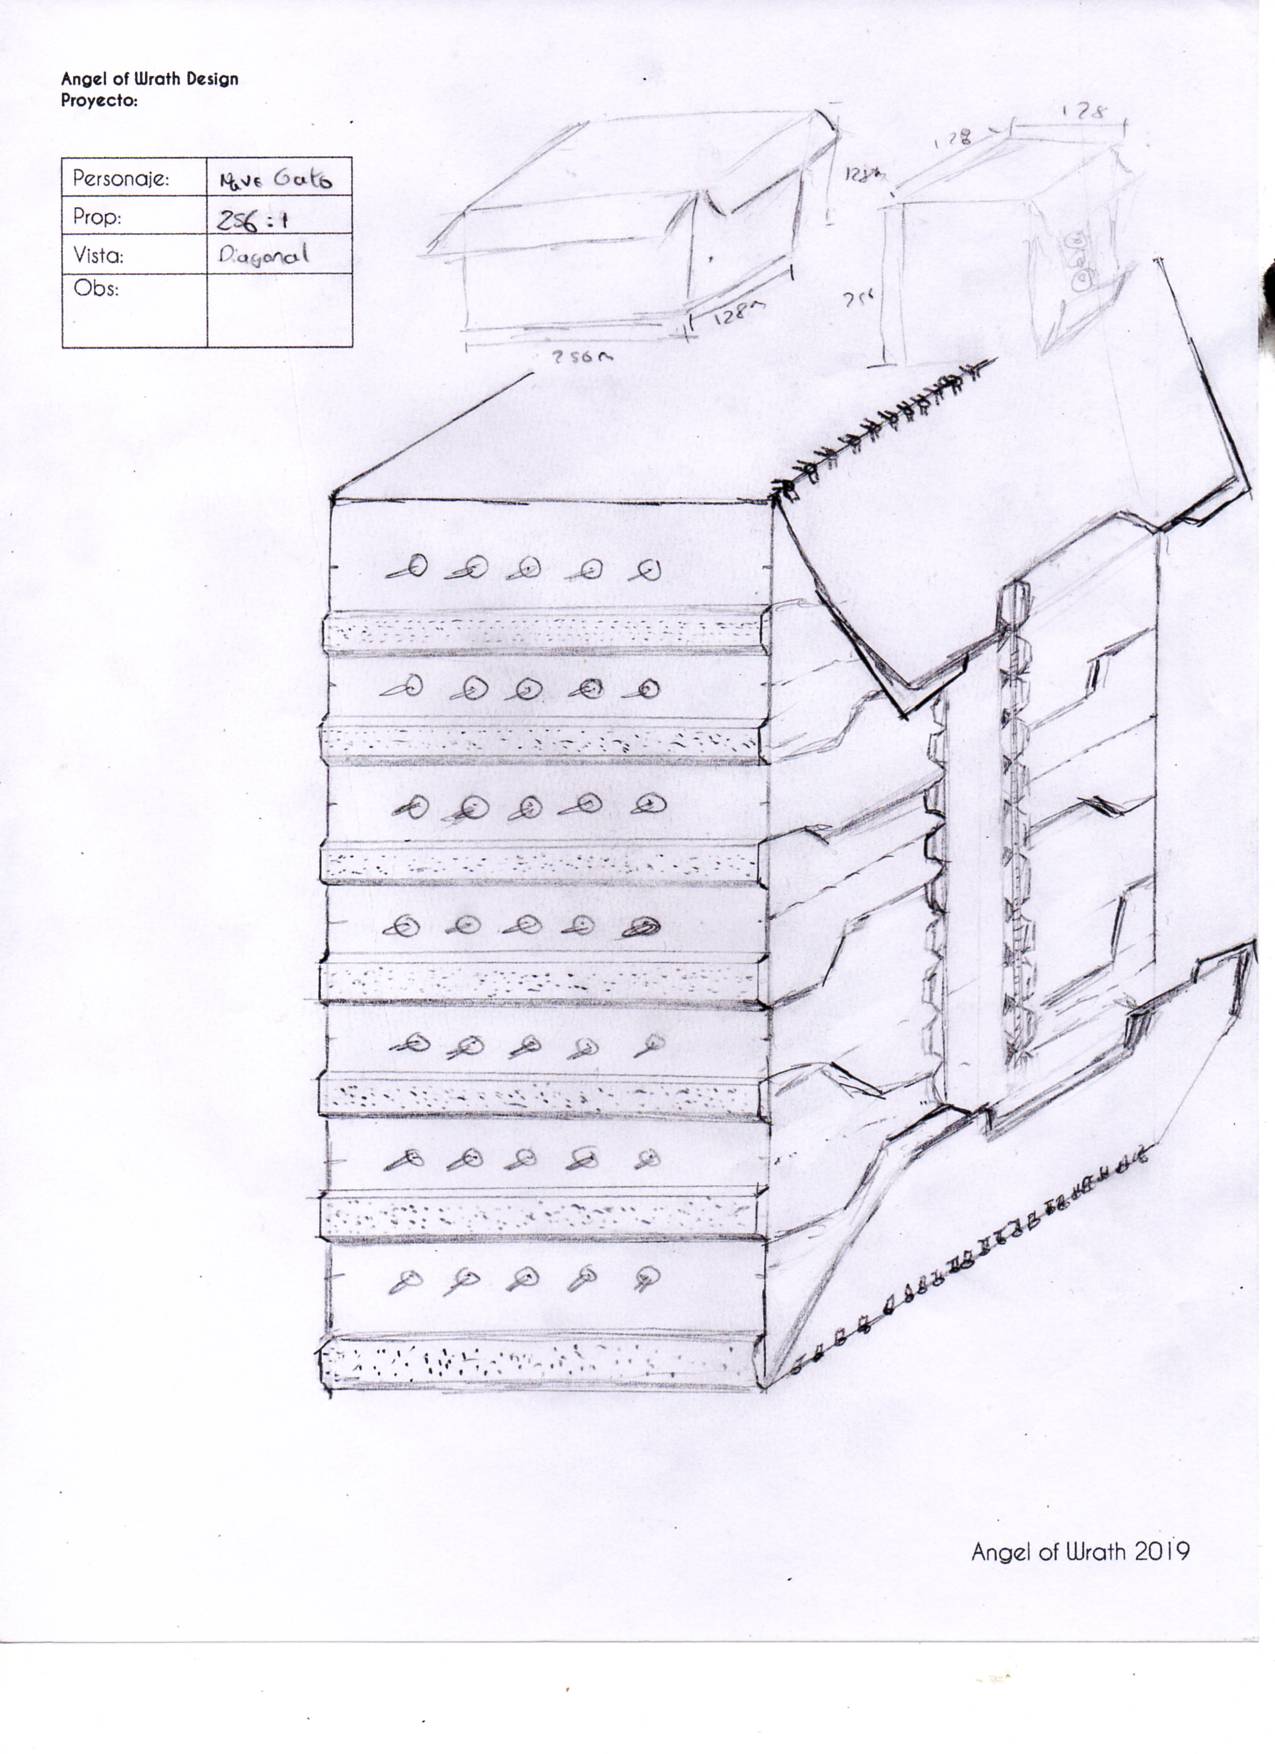 Angel of Wrath Design
Proyecto:
Personaje: Nave Gato
Prop: 256:1
Vista: Diagonal
Obs:
128
128
128m
128m
256
256m
Angel of Wrath 2019